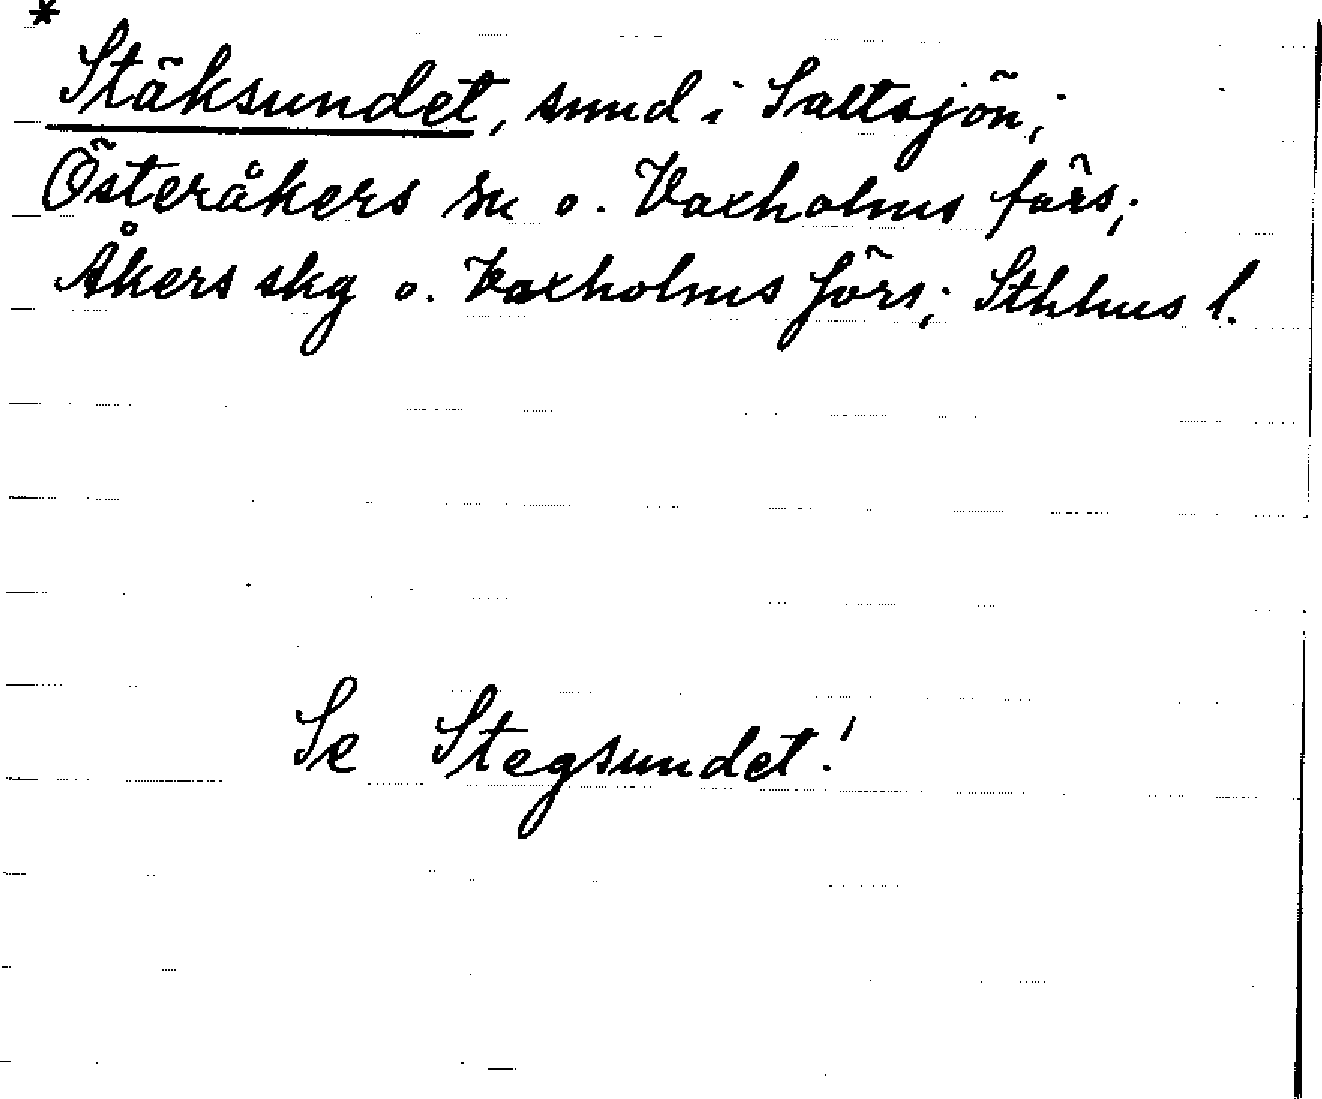 *
Stäksundet, sund i Saltsjön;
Österåkers sn o. Vaxholms förs;
Åkers skg o. Vaxholms förs; Sthlms l.
Se Stegsundet!